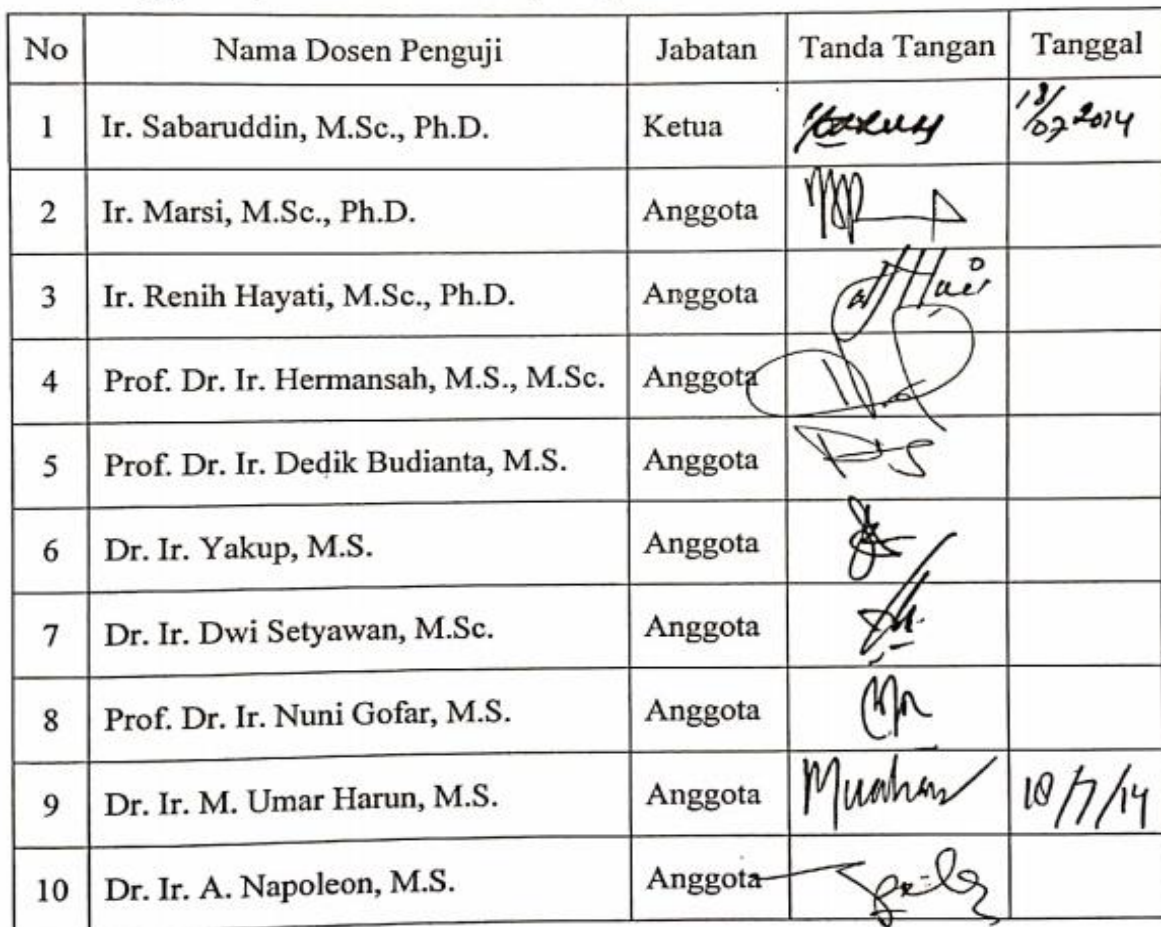 No Nama Dosen Penguji Jabatan Tanda Tangan Tanggal
1 Ir. Sabaruddin, M.Sc., Ph.D. Ketua 18/07 2014
2 Ir. Marsi, M.Sc., Ph.D. Anggota
3 Ir. Renih Hayati, M.Sc., Ph.D. Anggota
4 Prof. Dr. Ir. Hermansah, M.S., M.Sc. Anggota
5 Prof. Dr. Ir. Dedik Budianta, M.S. Anggota
6 Dr. Ir. Yakup, M.S. Anggota
7 Dr. Ir. Dwi Setyawan, M.Sc. Anggota
8 Prof. Dr. Ir. Nuni Gofar, M.S. Anggota
9 Dr. Ir. M. Umar Harun, M.S. Anggota 18/7/14
10 Dr. Ir. A. Napoleon, M.S. Anggota